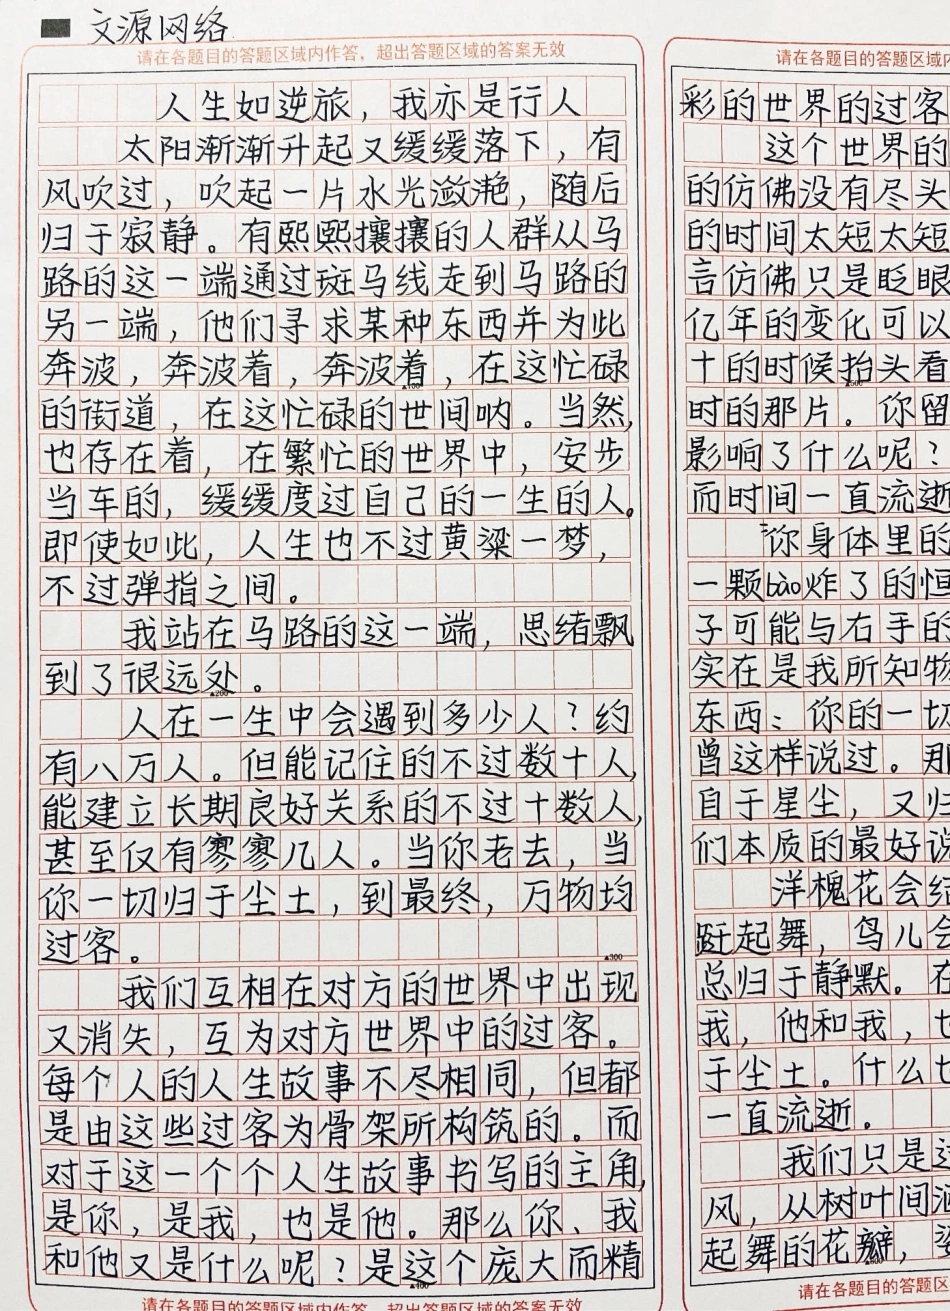 文源网络
请在各题目的答题区域内作答，超出答题区域的答案无效
人生如逆旅，我亦是行人
太阳渐渐升起又缓缓落下，有
风吹过，吹起一片水光潋滟，随后
归于寂静。有熙熙攘攘的人群从马
路的这一端通过斑马线走到马路的
另一端，他们寻求某种东西并为此
奔波，奔波着，奔波着，在这忙碌
▲100
的街道，在这忙碌的世间呐。当然，
也存在着，在繁忙的世界中，安步
当车的，缓缓度过自己的一生的人。
即使如此，人生也不过黄粱一梦，
不过弹指之间。
我站在马路的这一端，思绪飘
到了很远处。
▲200
人在一生中会遇到多少人？约
有八万人。但能记住的不过数十人，
能建立长期良好关系的不过十数人，
甚至仅有寥寥几人。当你老去，当
你一切归于尘土，到最终，万物均
过客。
▲300
我们互相在对方的世界中出现
又消失，互为对方世界中的过客。
每个人的人生故事不尽相同，但都
是由这些过客为骨架所构筑的。而
对于这一个个人生故事书写的主角，
是你，是我，也是他。那么你、我
和他又是什么呢？是这个庞大而精
▲400
请在各题目的答题区域内作答，超出答题区域的答案无效
请在各题目的答题区域内
彩的世界的过客
这个世界的
的仿佛没有尽头
的时间太短太短
言仿佛只是眨眼
亿年的变化可以
十的时候抬头看
▲500
时的那片。你留
影响了什么呢？
而时间一直流逝
“你身体里的
一颗bào炸了的恒
子可能与右手的
实在是我所知物
东西：你的一切
曾这样说过。那
自于星尘，又归
们本质的最好说
洋槐花会结
跹起舞，鸟儿会
总归于静默。在
我，他和我，也
于尘土。什么也
一直流逝。
我们只是这
风，从树叶间流
起舞的花瓣，
▲600
请在各题目的答题区